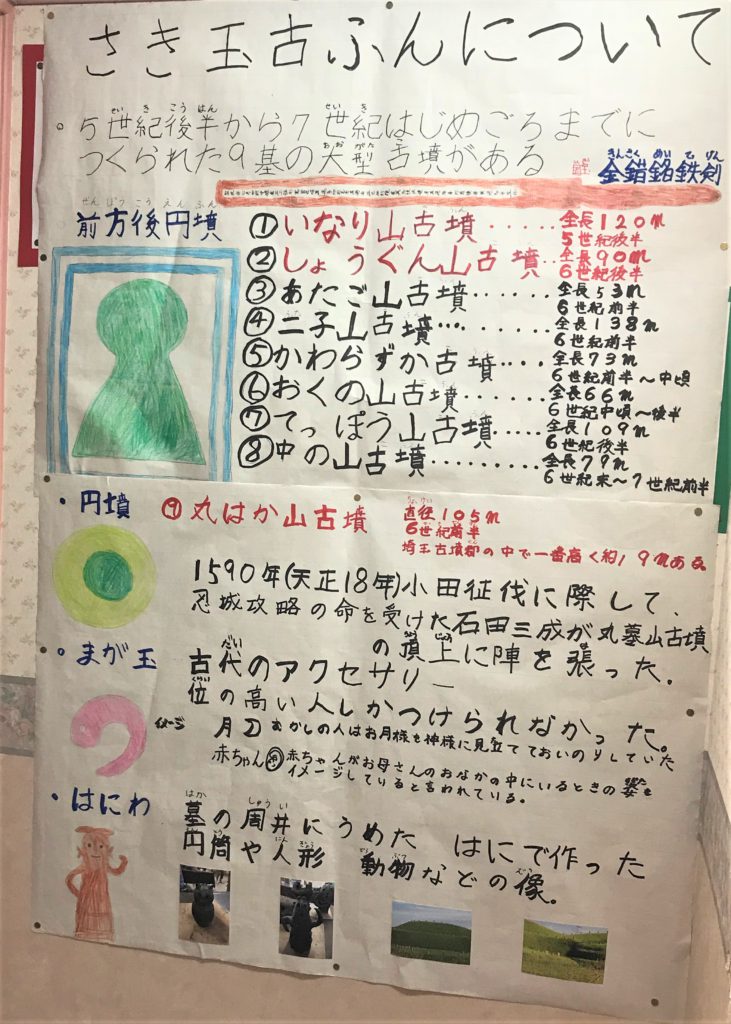 さき玉古ふんについて
。5世紀後半から7世紀はじめごろまでに
せいきこうはん せいき
つくられた9基の大型古墳がある
おおがた
きんさくめいてけん
金錯銘鉄剣
せんぽうこうえんふん
前方後円墳
①いなり山古墳・・・・・全長120m
5世紀後半
②しょうぐん山古墳・・・全長90m
6世紀後半
③あたご山古墳・・・・・・全長53m
6世紀前半
④二子山古墳・・・全長138m
6世紀前半
⑤かわらずか古墳・・・・全長73m
6世紀前半〜中頃
⑥おくの山古墳・・・・・・全長66m
6世紀中頃〜後半
⑦てっぽう山古墳・・・・・全長109m
6世紀後半
⑧中の山古墳・・・・・・全長79m
6世紀末〜7世紀前半
・円墳
⑨丸はか山古墳
直径105m
6世紀前半
埼玉古墳群の中で一番高く約19mある。
1590年(天正18年)小田征伐に際して、
忍城攻略の命を受けた石田三成が丸墓山古墳
の頂上に陣を張った.
ちょうじょう は
・まが玉
古代のアクセサリー
だい
位の高い人しかつけられなかった。
くらい
イメージ
月 むかしの人はお月様を神様に見立てておいのりしていた
赤ちゃん 赤ちゃんがお母さんのおなかの中にいるときの姿を
イメージしていると言われている。
・はにわ
はか しゅうい
墓の周井にうめた はにで作った
円筒や人形 動物などの像。
えんとう にんぎょう どうぶつ ぞう